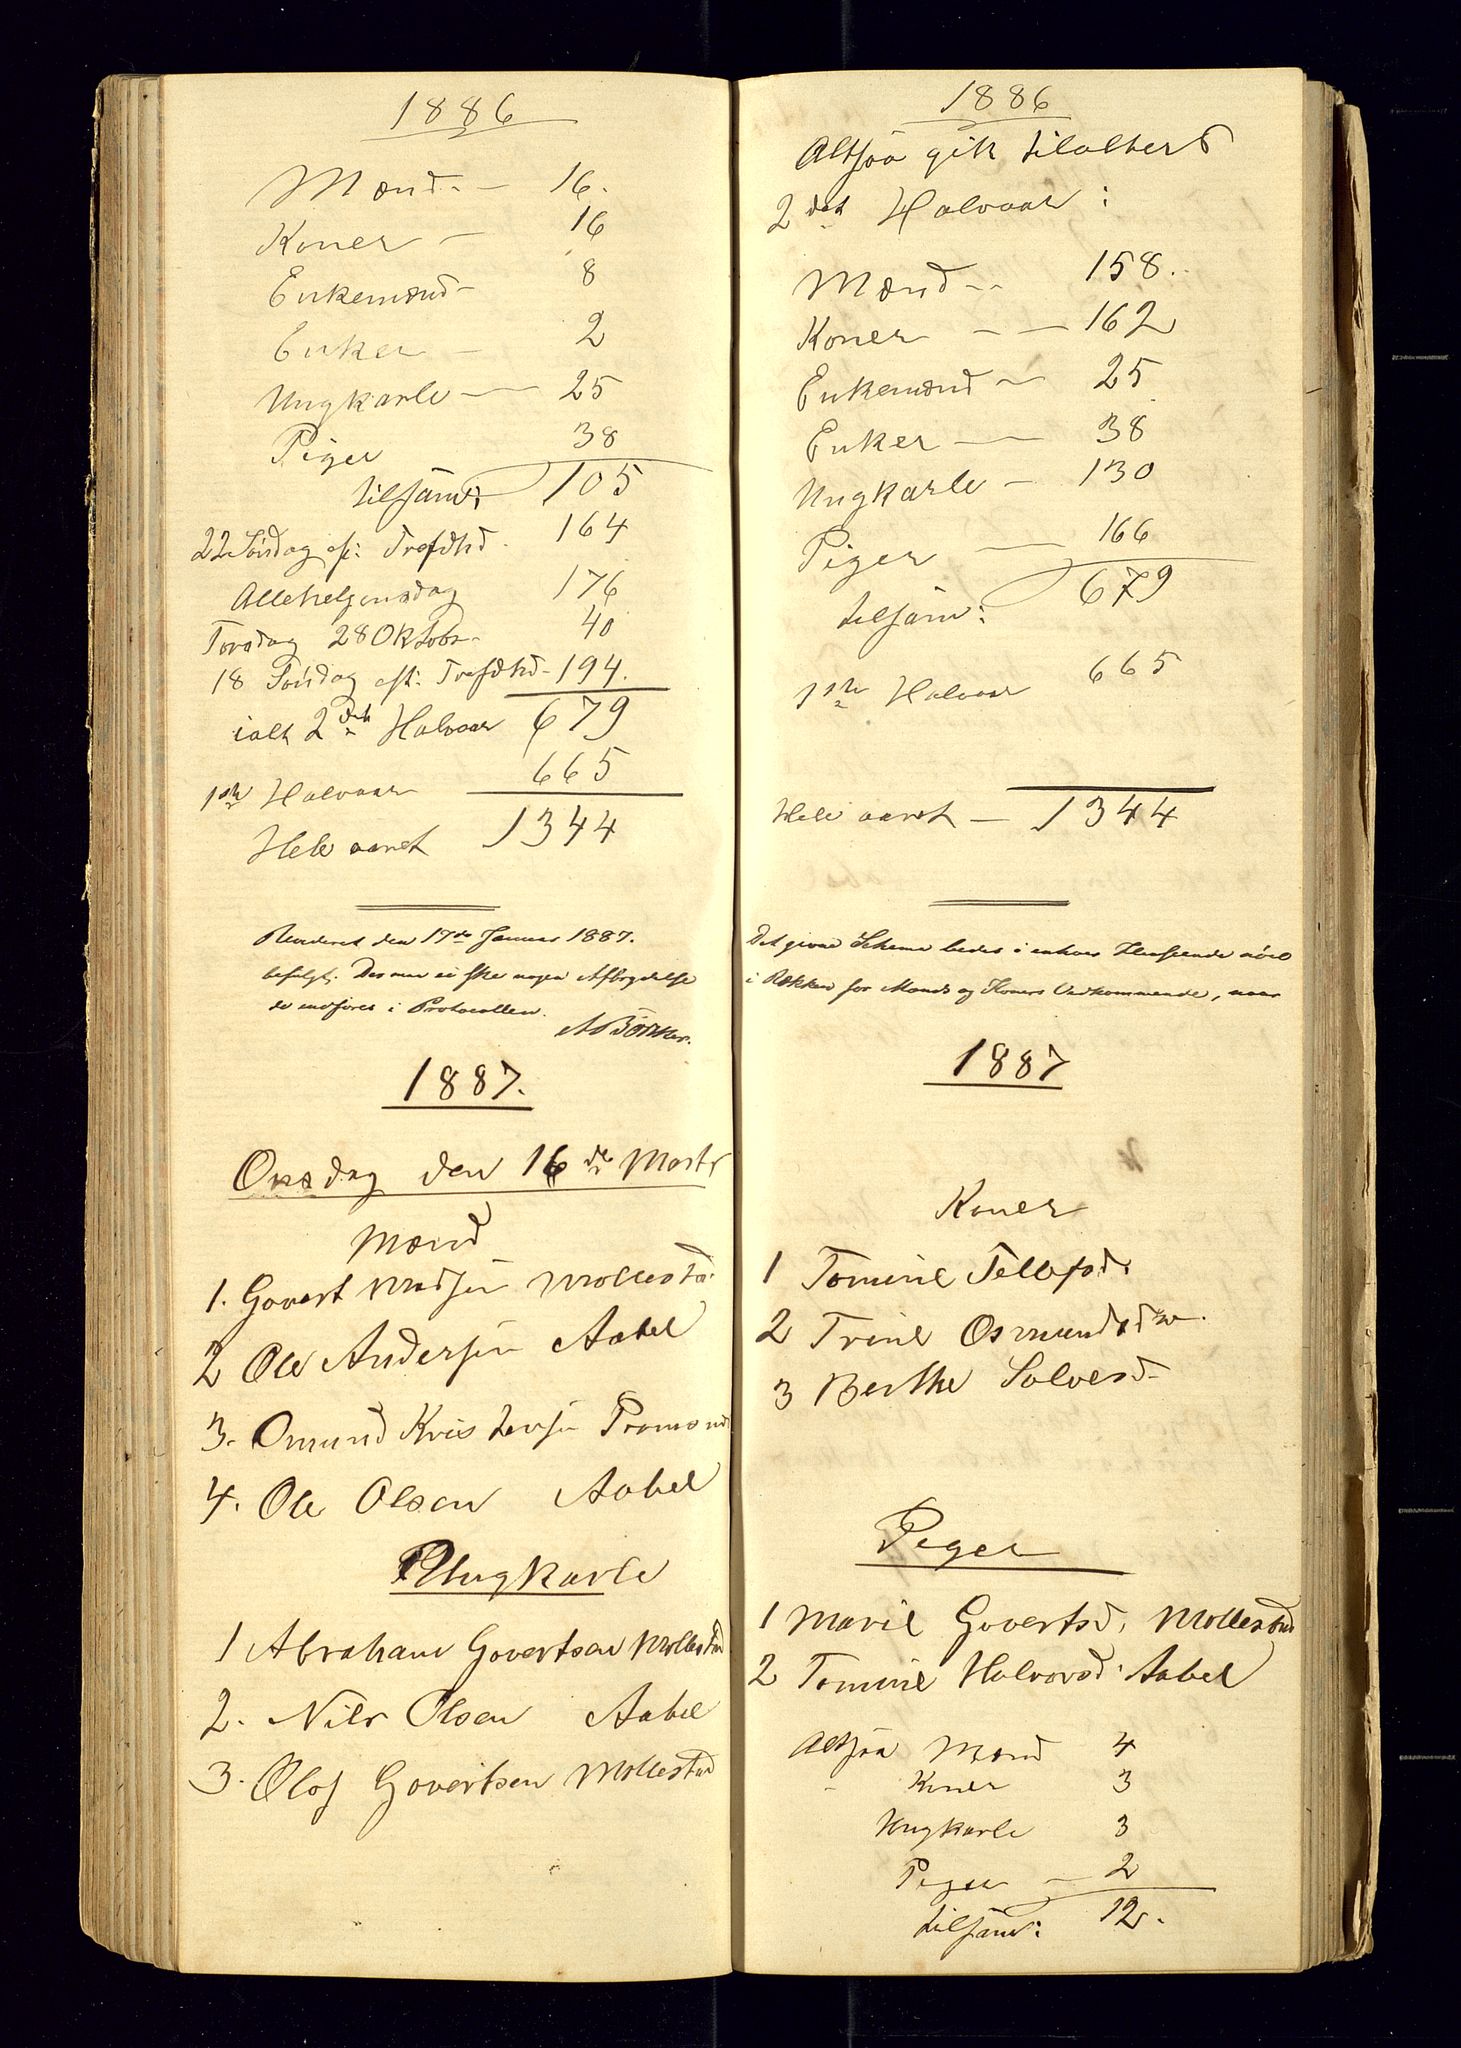 1886
Mænd - 16.
Koner - 16
Enkemænd - 8
Enker - 2
Ungkarle - 25
Piger 38
tilsam: 105
22 Søndag ef: Trefdhd. 164
Allehelgensdag 176
Torsdag 28 Oktobr. 40
18 Søndag eft: Trefdhd - 194.
ialt 2det Halvaar 679
1ste Halvaar 665
Hele aaret 1344
Revideret den 17de Januar 1887.
befulgt. Der maa ei ske nogen Afbrydelse
de indføres i Protocollen.
1887.
Onsdag den 16de Marts
Mænd
1. Govert Madsen Mollestad
2 Ole Andersen Aabel
3. Omund Kristensen
4. Ole Olsen Aabel
Ungkarle
1 Abraham Govertsen Mollestad
2. Nils Olsen Aabel
3. Olof Govertsen Mollestad
1886
Altsaa gik tilalters
2det Halvaar :
Mænd - 158.
Koner - - 162
Enkemænd - 25
Enker - 38
Ungkarle - 130
Piger - 166
tilsam: 679
1ste Halvaar 665
Hele aaret - 1344
Det givne Schema bedes i enhver Henseende
i Rækken for Mænds og Koners Vedkommende, naar
1887
Koner
1 Tomine Tellefsd.
2 Trine Osmundsd
3 Berthe Salvesd
Piger
1 Marie Govertsd. Mollestad
2 Tomine Halvorsd. Aabel
Altsaa Mænd 4
- Koner 3
Ungkarle 3
Piger - 2
tilsam: 12.